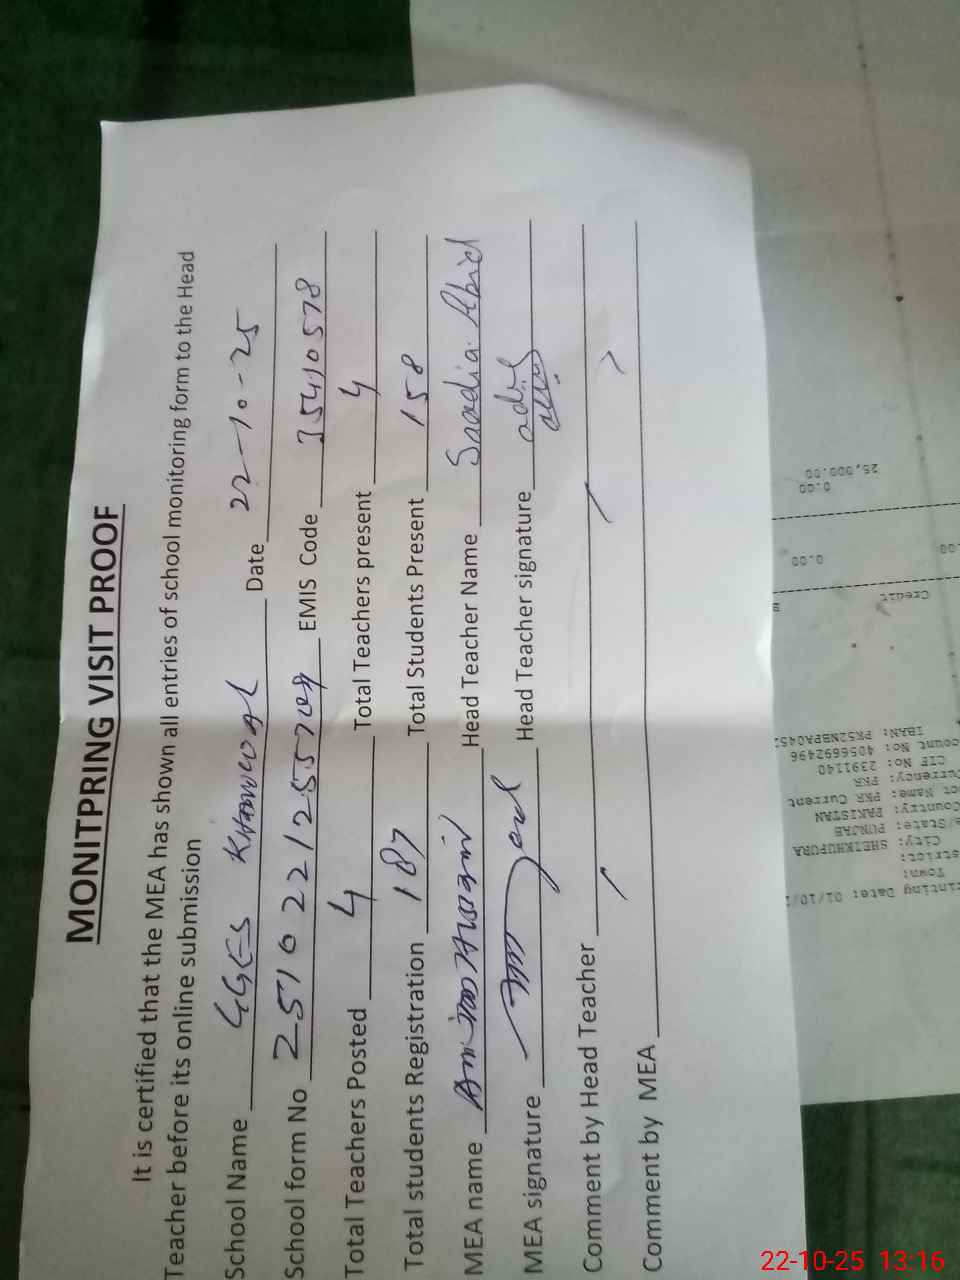 MONITPRING VISIT PROOF
It is certified that the MEA has shown all entries of school monitoring form to the Head
Teacher before its online submission
School Name GGES KHANWAL Date 22-10-25
School form No EMIS Code 35410578
Total Teachers Posted 4 Total Teachers present 4
Total students Registration 187 Total Students Present 158
MEA name Head Teacher Name Saadia Abid
MEA signature Head Teacher signature
Comment by Head Teacher
Comment by MEA
25,000.00
0.00
0.00
Credit
IBAN: PK52NBPA045
count No: 4056692496
CIF No: 2391140
urrency: PKR
ct Name: PKR Current
Country: PAKISTAN
e/State: PUNJAB
City: SHEIKHUPURA
strict:
Town:
inting Date: 01/10/
22-10-25 13:16